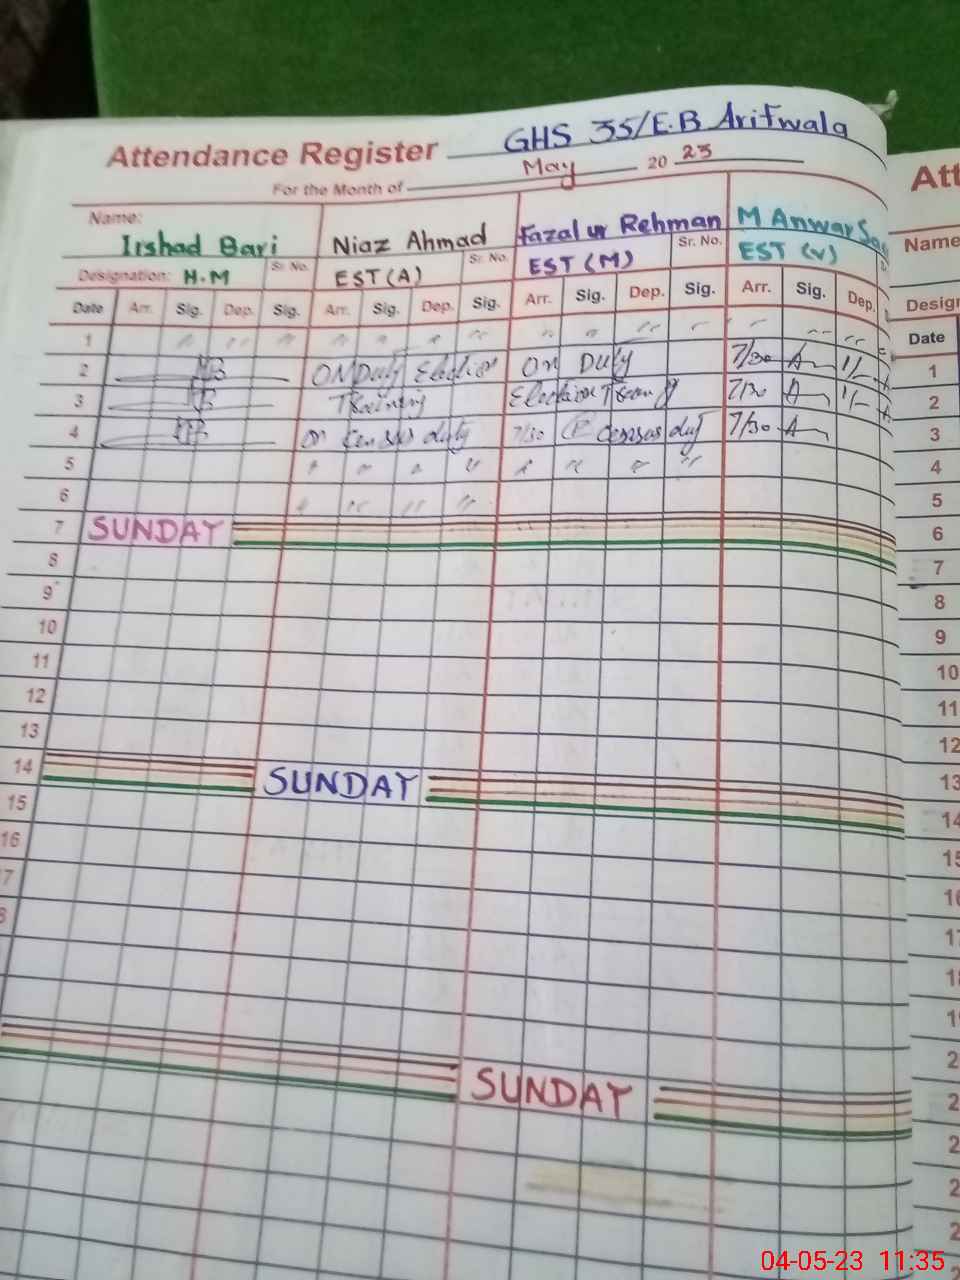 Attendance Register GHS 35/E.B Arifwala
For the Month of May 20 23
Name: Irshad Bari Niaz Ahmad Fazal ur Rehman M Anwar
Designation: H.M Sr. No. EST (A) Sr. No. EST (M) Sr. No. EST (V)
Date Arr. Sig. Dep. Sig. Arr. Sig. Dep. Sig. Arr. Sig. Dep. Sig. Arr. Sig. Dep.
1 " " " " " " " " " " " "
2 ON Duty Election On Duty 7/30 A 1/-
3 Training Election 7/30 A 1/-
4 on census duty 7/30 census duty 7/30 A
5 " " " " " " " "
6 " " " "
7 SUNDAY
8
9
10
11
12
13
14 SUNDAY
15
16
SUNDAY
Att
Name
Design
Date
1
2
3
4
5
6
7
8
9
10
11
12
13
14
04-05-23 11:35